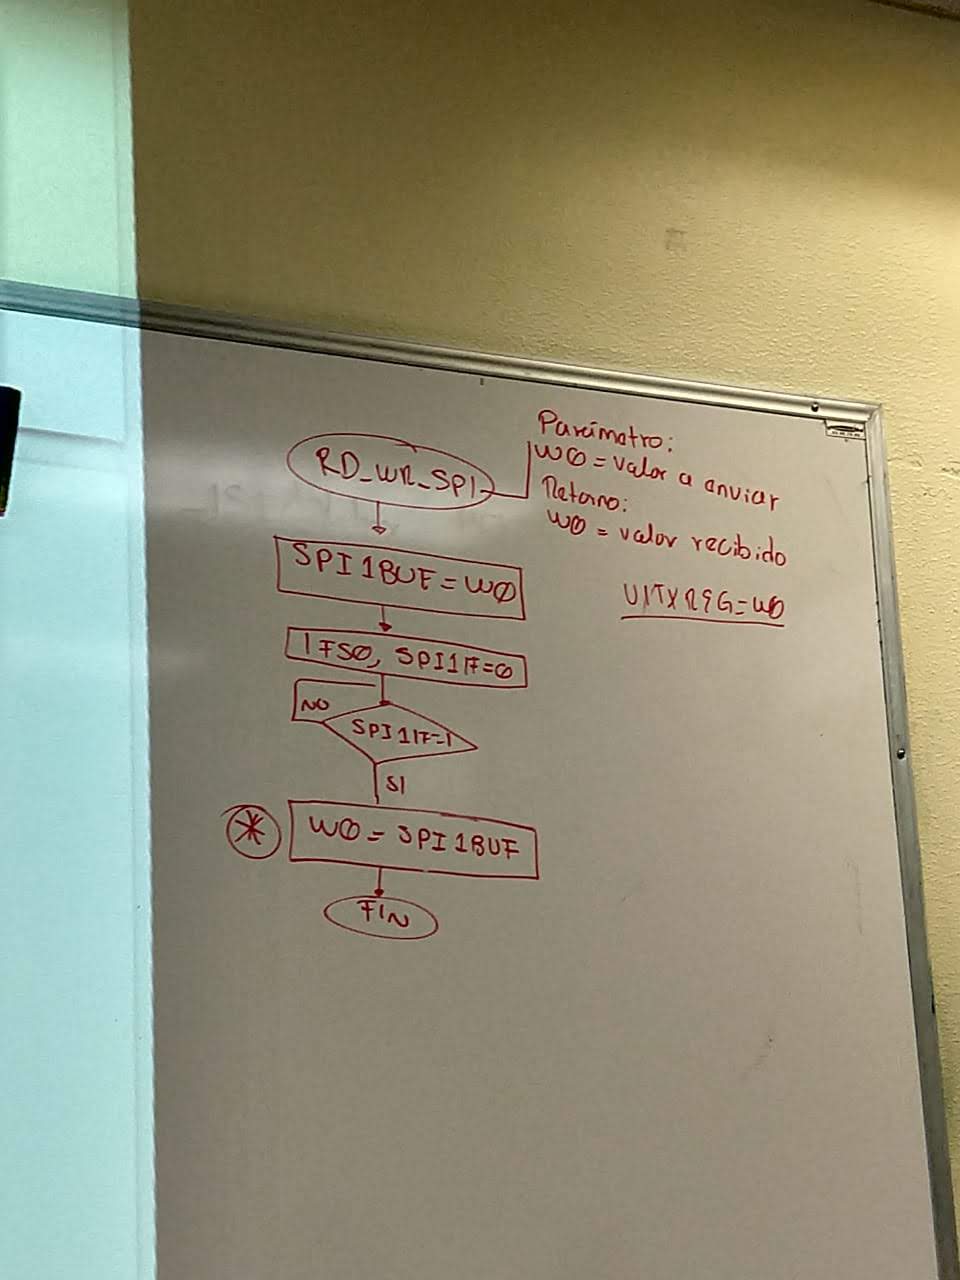 RD_WR_SPI
Parámetro:
WØ = valor a enviar
Retorno:
WØ = valor recibido
U1TXREG = WØ
SPI1BUF = WØ
IFSØ, SPI1IF=Ø
NO
SPI1IF=1
SI
*
WØ = SPI1BUF
FIN